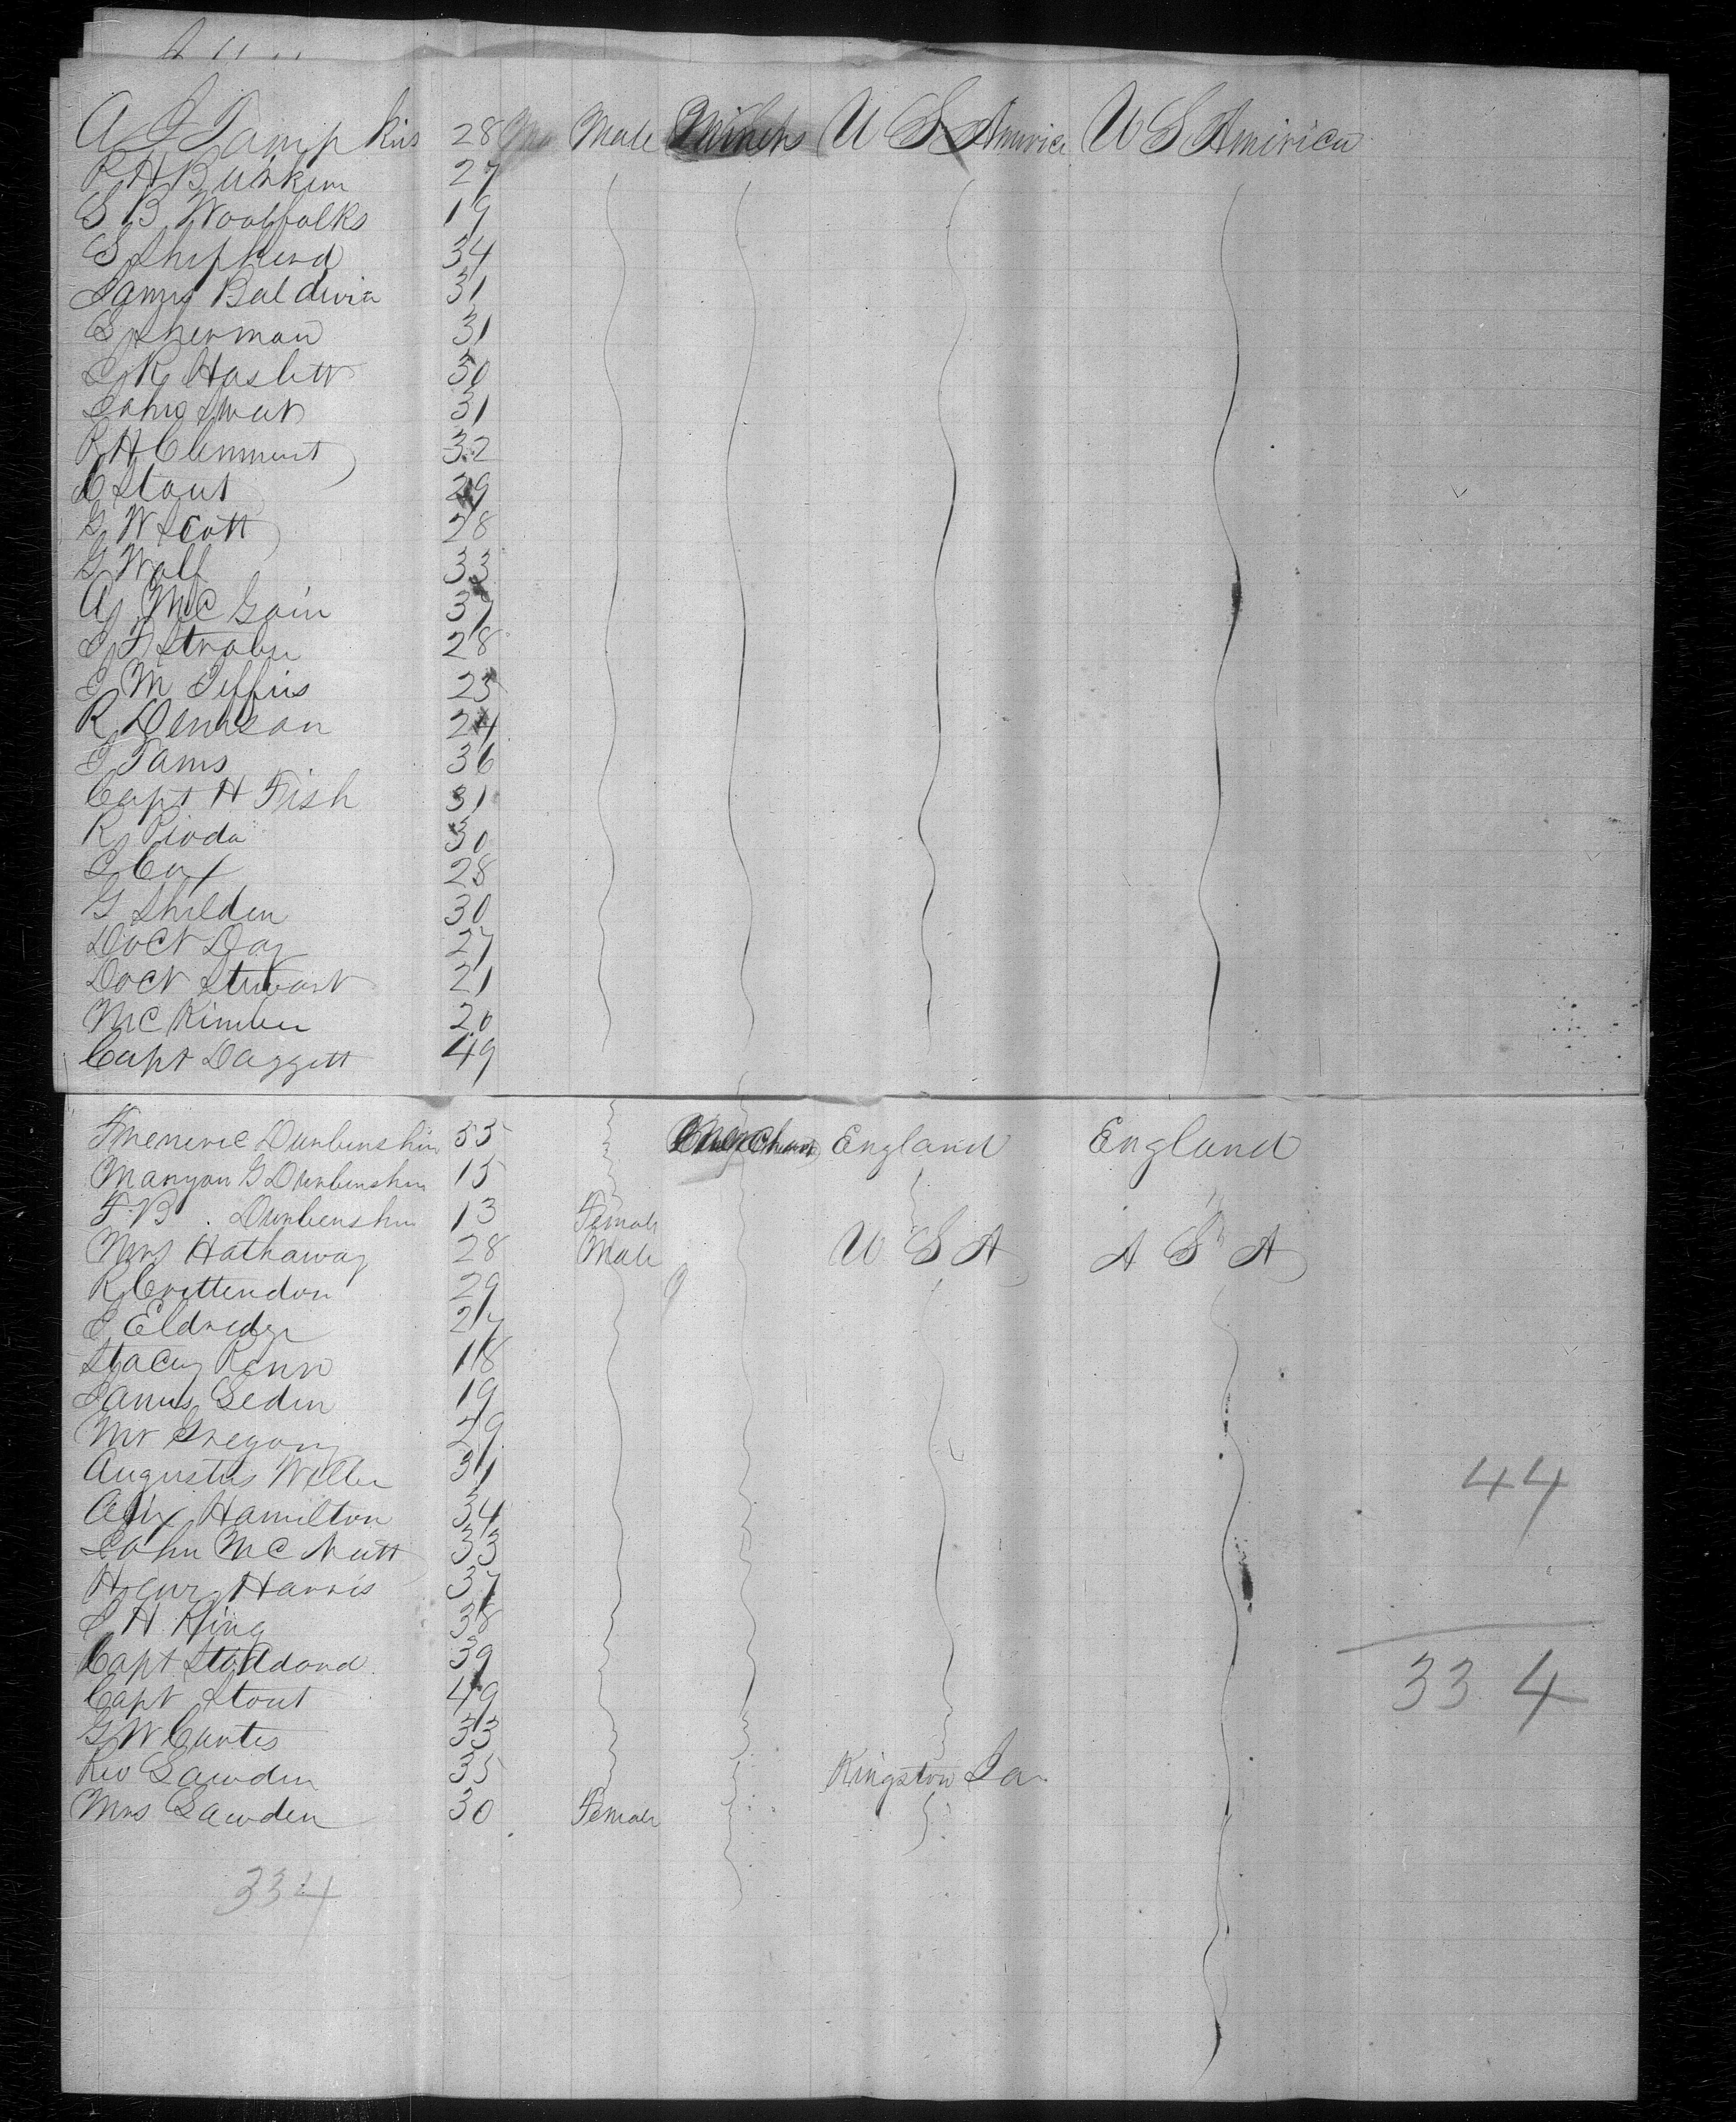 A J Tampkins 28 Male Miners U S America U S America
R H Burkim 27
S B Woolfolks 19
S Shipherd 34
James Baldwin 31
S Sherman 31
J R Haslett 30
John Swat 31
R H Clemment 32
C Stout 29
G W Scott 28
G Wolf 33
A McGoin 37
J F Straber 28
J M Jeffris 25
R Dennison 24
J Tams 36
Capt H Fish 31
R Rioda 30
J Cox 28
G Shelden 30
Doct Day 27
Doct Stewart 21
McKimber 20
Capt Daggett 49
Durbenshin 55 Merchant England England
Maryan G Durbenshin 15
F. B. Durbenshin 13 Female
Mrs Hathaway 28 Male U S A A S A
R Crittendon 29
J Eldredge 27
Stacey Penn 18
James Gedin 19
Mr Gregory 29
Augustus Weller 31
Alex Hamilton 34
John McNutt 33
Henry Harris 37
J H King 38
Capt Stoddard 39
Capt Stout 49
G W Curtis 33
Rev Gawden 35 Kingston Ja
Mrs Gawden 30 Female
44
334
334